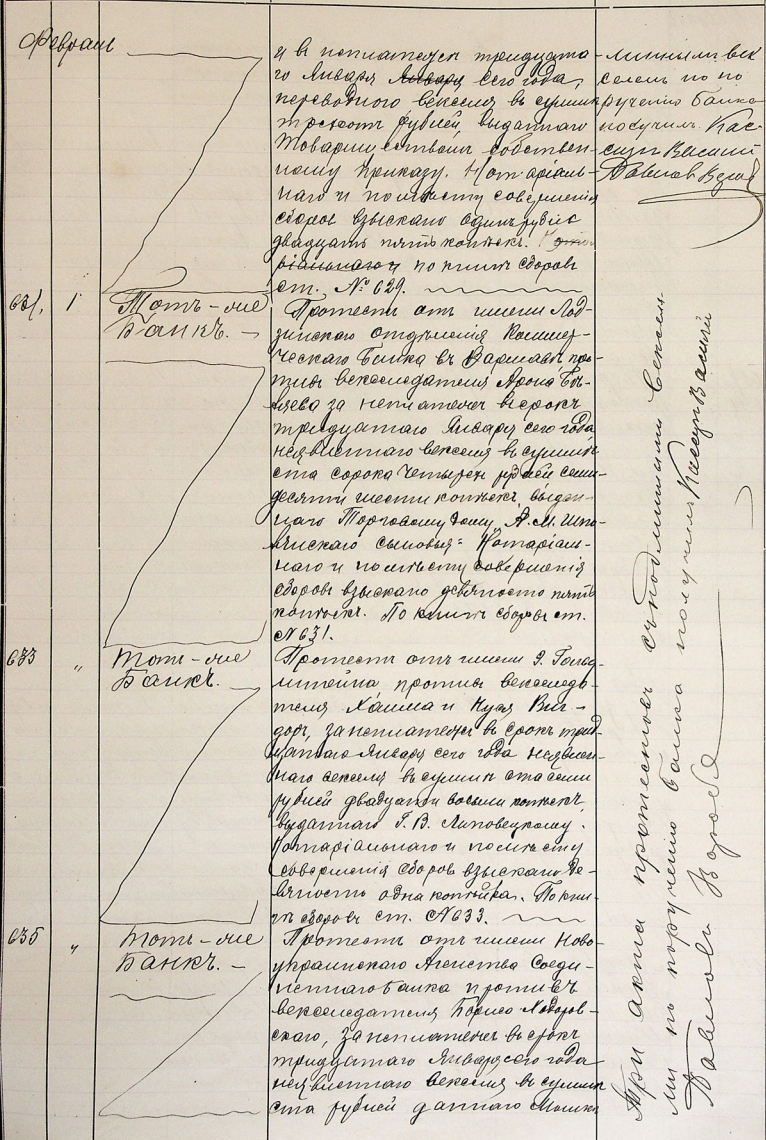 Февраль
и в неплатеже тридцата-
го Января Января сего года,
переводного векселя въ сумме
трехсот рублей, выданнаго
Товариществом собствен-
ному приказу. Нотаріаль-
наго и по месту совершенія
сборов взыскано один рубль
двадцать пять копеек.
ріальнаго и по книге сборов
ст. № 629.
линным век
селем по по
ручению банка
получил. Кас-
сир Василий
Павлов
631. 1 Тотъ-же
Банкъ. -
Протест от имени Лод-
зинскаго отделения Коммер-
ческаго банка въ Варшаве про-
тив векселедателя Арона Бе-
ляева за неплатеж в срок
тридцатаго Января сего года
неявленнаго векселя в сумме
ста сорока четырех рублей семи
десяти шести копеек, выдан-
наго Торговому дому А. М.
сыновья: Нотаріаль-
наго и по месту совершенія
сборов взыскано девяносто пять
копеек. По книге сборов ст.
№ 631.
633 " Тот-же
Банкъ. -
Протест от имени Э. Гольд-
штейна против векселеда-
теля Хаима и Нуся Виг-
дор, за неплатеж в срок трид-
цатаго Января сего года неявлен-
наго векселя в сумме ста семи
рублей двадцати восьми копеек,
выданнаго Г. В. Липовецкому.
Нотаріальнаго и по месту
совершенія сборов взыскано де-
вяносто одна копейка. По кни-
ге сборов ст. № 633.
635 " Тот-же
Банкъ. -
Протест от имени Ново-
украинскаго Агенства Соеди-
неннаго банка против
векселедателя Борисо Ходоров-
скаго, за неплатеж в срок
тридцатаго Января сего года
неявленнаго векселя в сумме
ста рублей даннаго
При акта протестов съ подлинными векселя-
ми по поручению банка получил Кассир Василий
Павлов